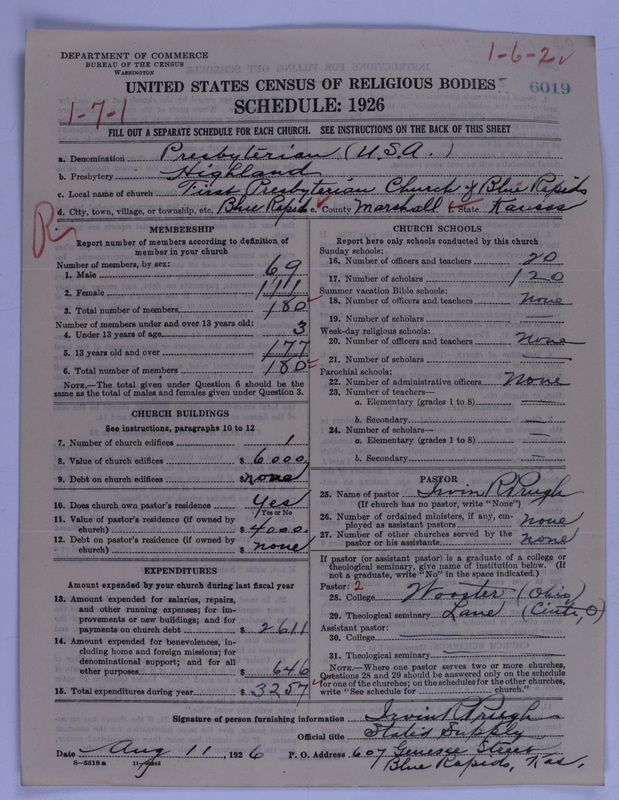 DEPARTMENT OF COMMERCE
BUREAU OF THE CENSUS
WASHINGTON
1-6-2
UNITED STATES CENSUS OF RELIGIOUS BODIES
6019
1-7-1
SCHEDULE: 1926
FILL OUT A SEPARATE SCHEDULE FOR EACH CHURCH. SEE INSTRUCTIONS ON THE BACK OF THIS SHEET
a. Denomination Presbyterian (U.S.A.)
b. Presbytery Highland
c. Local name of church First Presbyterian Church of Blue Rapids
d. City, town, village, or township, etc. Blue Rapids e. County Marshall f. State Kansas
R
MEMBERSHIP
Report number of members according to definition of
member in your church
Number of members, by sex:
1. Male 69
2. Female 111
3. Total number of members 180
Number of members under and over 13 years old:
4. Under 13 years of age 3
5. 13 years old and over 177
6. Total number of members 180
NOTE.—The total given under Question 6 should be
same as the total of males and females given under Question 3.
CHURCH BUILDINGS
See instructions, paragraphs 10 to 12
7. Number of church edifices 1
8. Value of church edifices $ 6000
9. Debt on church edifices $ none
10. Does church own pastor's residence Yes
Yes or No
11. Value of pastor's residence (if owned by
church) $ 4000
12. Debt on pastor's residence (if owned by
church) $ none
EXPENDITURES
Amount expended by your church during last fiscal year
13. Amount expended for salaries, repairs,
and other running expenses; for im-
provements or new buildings; and for
payments on church debt $ 2611
14. Amount expended for benevolences, in-
cluding home and foreign missions; for
denominational support; and for all
other purposes $ 646
15. Total expenditures during year $ 3257
CHURCH SCHOOLS
Report here only schools conducted by this church
Sunday schools:
16. Number of officers and teachers 20
17. Number of scholars 120
Summer vacation Bible schools:
18. Number of officers and teachers none
19. Number of scholars —
Week-day religious schools:
20. Number of officers and teachers none
21. Number of scholars —
Parochial schools:
22. Number of administrative officers None
23. Number of teachers—
a. Elementary (grades 1 to 8) —
b. Secondary —
24. Number of scholars—
a. Elementary (grades 1 to 8) —
b. Secondary —
PASTOR
25. Name of pastor Irvin R Pugh
(If church has no pastor, write "None")
26. Number of ordained ministers, if any, em-
ployed as assistant pastors none
27. Number of other churches served by the
pastor or his assistants none
If pastor (or assistant pastor) is a graduate of a college or
theological seminary, give name of institution below. (If
not a graduate, write "No" in the space indicated.)
Pastor: 2
28. College Wooster (Ohio)
29. Theological seminary Lane (Cinti, O)
Assistant pastor:
30. College
31. Theological seminary
NOTE.—Where one pastor serves two or more churches,
Questions 28 and 29 should be answered only on the schedule
for one of the churches; on the schedules for the other churches,
write "See schedule for church."
Signature of person furnishing information Irvin R Pugh
Official title Stated Supply
Date Aug 11, 1926 P. O. Address 607 Genesee Street
8—5518 a Blue Rapids, Kas.